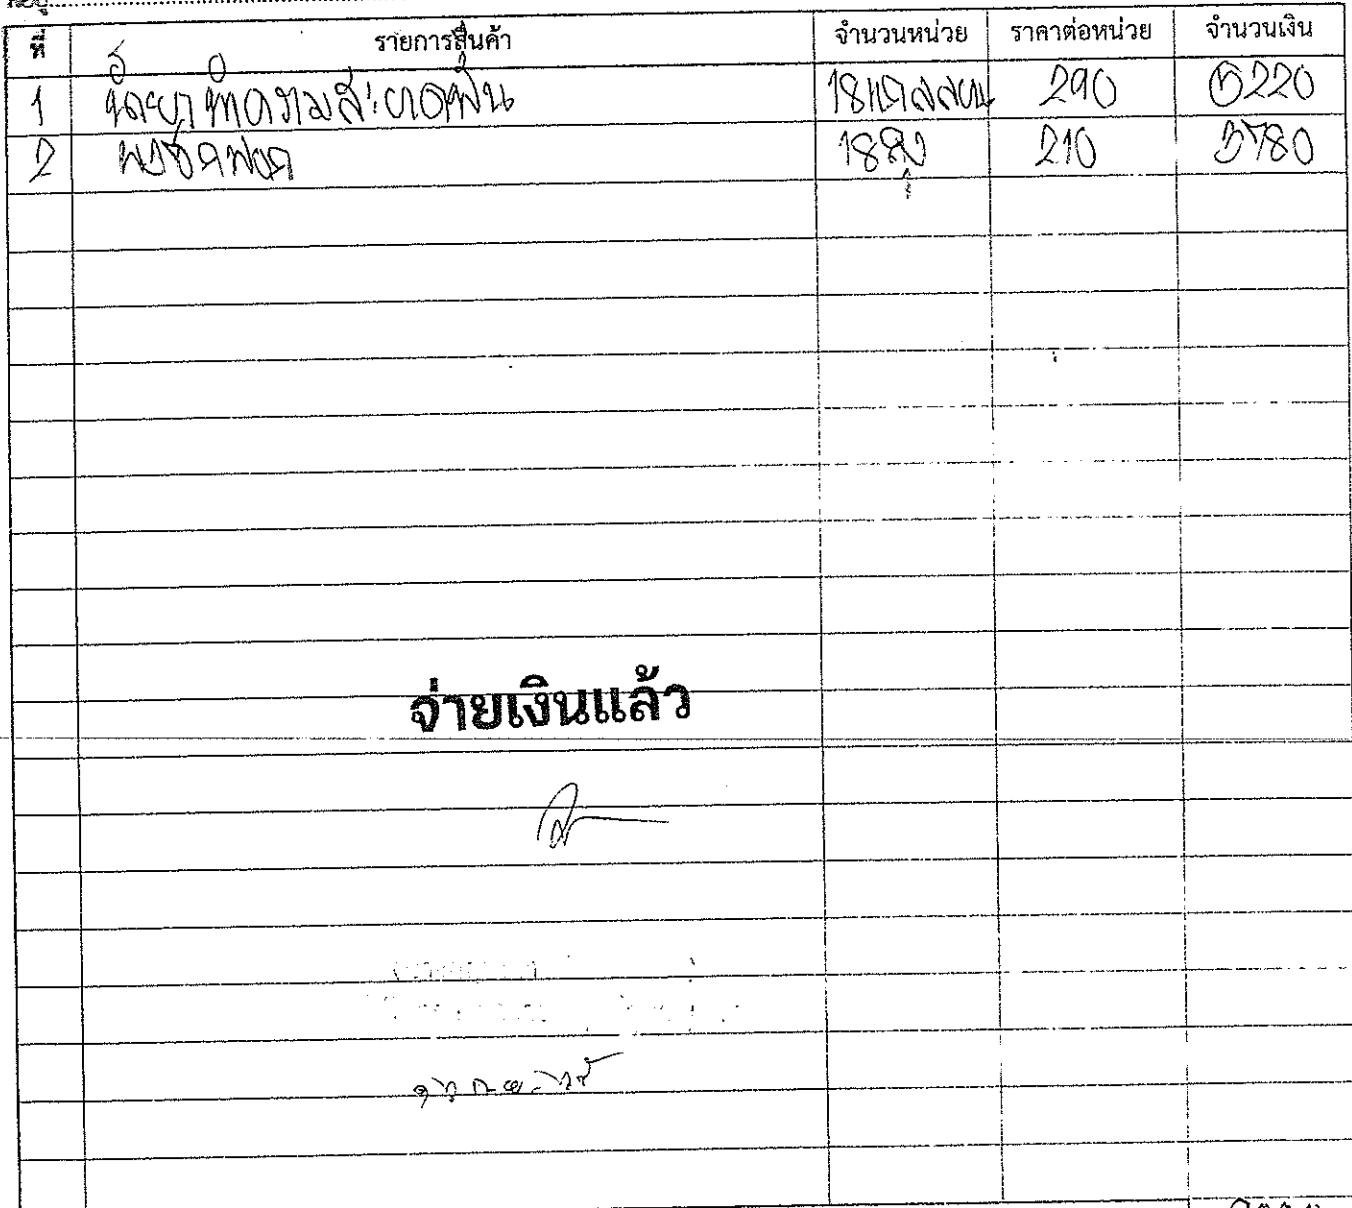 ที่ รายการสินค้า จำนวนหน่วย ราคาต่อหน่วย จำนวนเงิน
1 น้ำยาทำความสะอาดพื้น 18แกลลอน 290 5220
2 ผงซักฟอก 18ถุง 210 3780
จ่ายเงินแล้ว